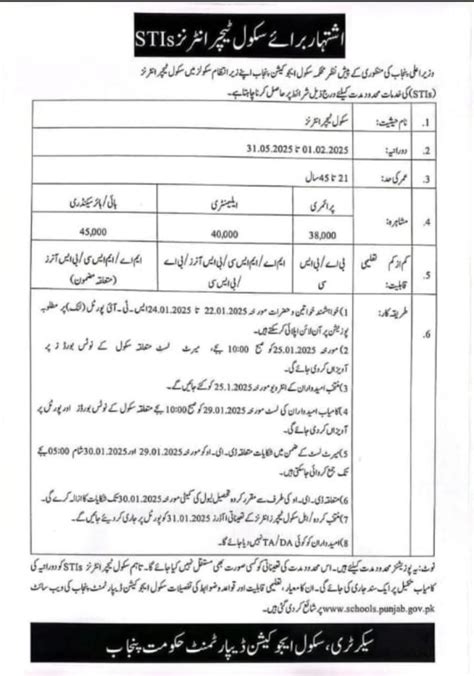 اشتہار برائے سکول ٹیچر انٹرنز STIs
وزیر اعلیٰ پنجاب کی منظوری کے پیش نظر محکمہ سکول ایجوکیشن پنجاب اپنے زیر انتظام سکولز میں سکول ٹیچر انٹرنز
(STIs) کی خدمات محدود مدت کیلئے درج ذیل شرائط پر حاصل کرنا چاہتا ہے۔
1. نام حیثیت: سکول ٹیچر انٹرنز
2. دورانیہ: 01.02.2025 تا 31.05.2025
3. عمر کی حد: 21 تا 45 سال
4. مشاہرہ: پرائمری ایلیمنٹری ہائی/ہائر سیکنڈری
38,000 40,000 45,000
5. کم از کم تعلیمی قابلیت: بی اے/بی ایس سی ایم اے/ایم ایس سی/بی ایس آنرز/بی اے/بی ایس سی ایم اے/ایم ایس سی/بی ایس آنرز (متعلقہ مضمون)
6. طریقہ کار: 1) خواہشمند خواتین و حضرات مورخہ 22.01.2025 تا 24.01.2025 ایس۔ٹی۔آئی پورٹل (لنک) پر مطلوبہ
پوزیشن پر آن لائن اپلائی کر سکتے ہیں۔
2) مورخہ 25.01.2025 کو صبح 10:00 بجے، میرٹ لسٹ متعلقہ سکول کے نوٹس بورڈز پر
آویزاں کر دی جائے گی۔
3) منتخب امیدواران کے انٹرویو مورخہ 25.1.2025 کو کئے جائیں گے۔
4) کامیاب امیدواران کی لسٹ مورخہ 29.01.2025 کو صبح 10:00 بجے متعلقہ سکول کے نوٹس بورڈز اور پورٹل پر
آویزاں کر دی جائے گی۔
5) میرٹ لسٹ کے ضمن میں شکایات متعلقہ ڈی۔ای۔او کو مورخہ 29.01.2025 اور 30.01.2025 شام 05:00 بجے
تک جمع کروائی جا سکتی ہیں۔
6) متعلقہ ڈی۔ای۔او کی طرف سے مقرر کردہ تحصیل لیول کی کمیٹی مورخہ 30.01.2025 تک شکایات کا ازالہ کرے گی۔
7) منتخب کردہ/اہل سکول ٹیچرز انٹرنز کے تعیناتی آرڈرز 31.01.2025 کو پورٹل پر جاری کر دیئے جائیں گے۔
8) امیدواران کو کوئی TA/DA نہیں دیا جائے گا۔
نوٹ: یہ پوزیشنز محدود مدت کیلئے ہیں، اس مدت کی تعیناتی کو کسی صورت بھی مستقل نہیں کیا جائے گا۔ تاہم سکول ٹیچر انٹرنز STIs کو دورانیہ کی
کامیاب تکمیل پر ایک سند جاری کی جائے گی۔ ان کا معیار، تعلیمی قابلیت اور قواعد و ضوابط کی تفصیلات سکول ایجوکیشن ڈیپارٹمنٹ پنجاب کی ویب سائٹ
www.schools.punjab.gov.pk پر شائع کر دی گئی ہیں۔
سیکرٹری، سکول ایجوکیشن ڈیپارٹمنٹ حکومت پنجاب